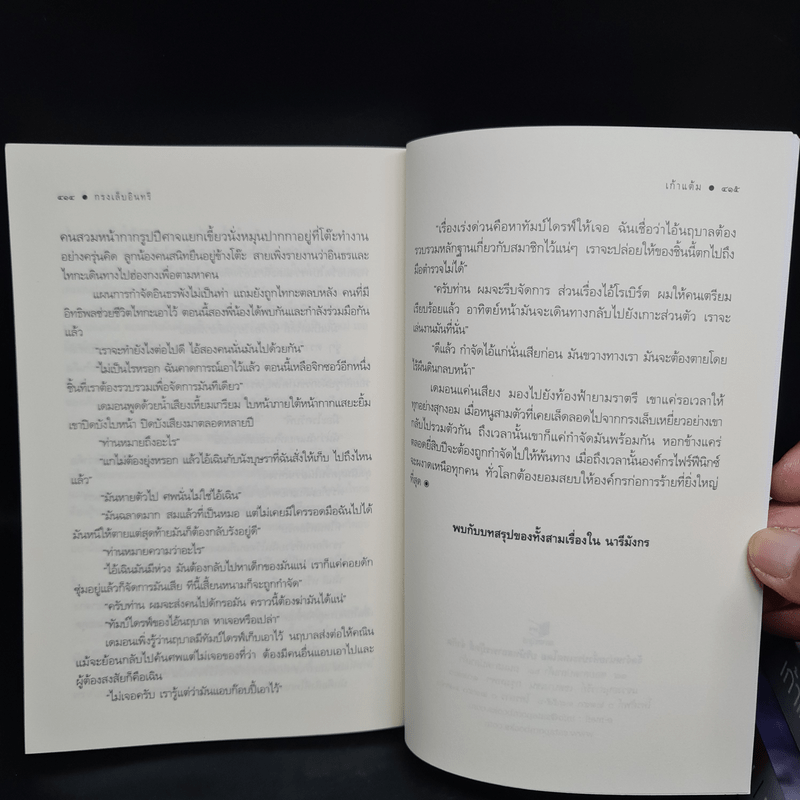 ๔๓๔ ● กรงเล็บอินทรี
คนสวมหน้ากากรูปปีศาจแยกเขี้ยวนั่งหมุนปากกาอยู่ที่โต๊ะทำงาน
อย่างครุ่นคิด ลูกน้องคนสนิทยืนอยู่ข้างโต๊ะ สายเพิ่งรายงานว่าอินธรและ
ไทกะเดินทางไปฮ่องกงเพื่อตามหาคน
แผนการกำจัดอินธรพังไม่เป็นท่า แถมยังถูกไทกะตลบหลัง คนที่มี
อิทธิพลช่วยชีวิตไทกะเอาไว้ ตอนนี้สองพี่น้องได้พบกันและกำลังร่วมมือกัน
แล้ว
“เราจะทำยังไงต่อไปดี ไอ้สองคนนั่นมันไปด้วยกัน”
“ไม่เป็นไรหรอก ฉันคาดการณ์เอาไว้แล้ว ตอนนี้เหลือจิกซอว์อีกหนึ่ง
ชิ้นที่เราต้องรวบรวมเพื่อจัดการมันทีเดียว”
เดมอนพูดด้วยน้ำเสียงเหี้ยมเกรียม ใบหน้าภายใต้หน้ากากแสยะยิ้ม
เขาปิดบังใบหน้า ปิดบังเสียงมาตลอดหลายปี
“ท่านหมายถึงอะไร”
“แกไม่ต้องยุ่งหรอก แล้วไอ้เฉินกับนังบุษราที่ฉันสั่งให้เก็บ ไปถึงไหน
แล้ว”
“มันหายตัวไป ศพนั่นไม่ใช่ไอ้เฉิน”
“มันฉลาดมาก สมแล้วที่เป็นหมอ แต่ไม่เคยมีใครรอดมือฉันไปได้
มันหนีให้ตายแต่สุดท้ายมันก็ต้องกลับรังอยู่ดี”
“ท่านหมายความว่าอะไร”
“ไอ้เฉินมันมีห่วง มันต้องกลับไปหาเด็กของมันแน่ เราก็แค่คอยดัก
ซุ่มอยู่แล้วก็จัดการมันเสีย ทีนี้เสี้ยนหนามก็จะถูกกำจัด”
“ครับท่าน ผมจะส่งคนไปดักรอมัน คราวนี้ต้องฆ่ามันได้แน่”
“ทัมป์ไดรฟ์ของไอ้นฤบาล หาเจอหรือเปล่า”
เดมอนเพิ่งรู้ว่านฤบาลมีทัมป์ไดรฟ์เก็บเอาไว้ นฤบาลส่งต่อให้คณิน
แม้จะย้อนกลับไปค้นศพแต่ไม่เจอของที่ว่า ต้องมีคนอื่นแอบเอาไปและ
ผู้ต้องสงสัยก็คือเฉิน
“ไม่เจอครับ เรารู้แต่ว่ามันแอบก๊อบปี้เอาไว้”
เก้าแต้ม ● ๔๓๕
“เรื่องเร่งด่วนคือหาทัมป์ไดรฟ์ให้เจอ ฉันเชื่อว่าไอ้นฤบาลต้อง
รวบรวมหลักฐานเกี่ยวกับสมาชิกไว้แน่ๆ เราจะปล่อยให้ของชิ้นนี้ตกไปถึง
มือตำรวจไม่ได้”
“ครับท่าน ผมจะรีบจัดการ ส่วนเรื่องไอ้โรเบิร์ต ผมให้คนเตรียม
เรียบร้อยแล้ว อาทิตย์หน้ามันจะเดินทางกลับไปยังเกาะส่วนตัว เราจะ
เล่นงานมันที่นั่น”
“ดีแล้ว กำจัดไอ้แก่นั่นเสียก่อน มันขวางทางเรา มันจะต้องตายโดย
ไร้ผืนดินกลบหน้า”
เดมอนแค่นเสียง มองไปยังท้องฟ้ายามราตรี เขาแค่รอเวลาให้
ทุกอย่างสุกงอม เมื่อหนูสามตัวที่เคยเล็ดลอดไปจากกรงเล็บเหยี่ยวอย่างเขา
กลับไปรวมตัวกัน ถึงเวลานั้นเขาก็แค่กำจัดมันพร้อมกัน หอกข้างแคร่
ตลอดยี่สิบปีจะต้องถูกกำจัดไปให้พ้นทาง เมื่อถึงเวลานั้นองค์กรไฟร์ฟีนิกซ์
จะผงาดเหนือทุกคน ทั่วโลกต้องยอมสยบให้องค์กรก่อการร้ายที่ยิ่งใหญ่
ที่สุด
พบกับบทสรุปของทั้งสามเรื่องใน นารีมังกร